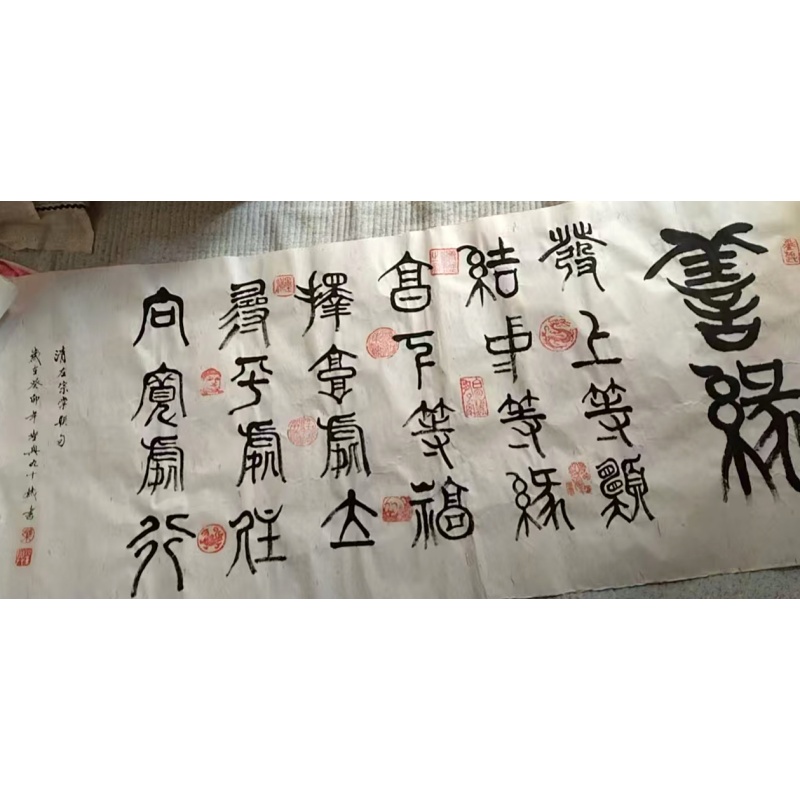 善緣
發上等願
結中等緣
高下等福
擇高處立
尋平處住
向寬處行
清左宗棠聯句
歲在癸卯年 九十 書